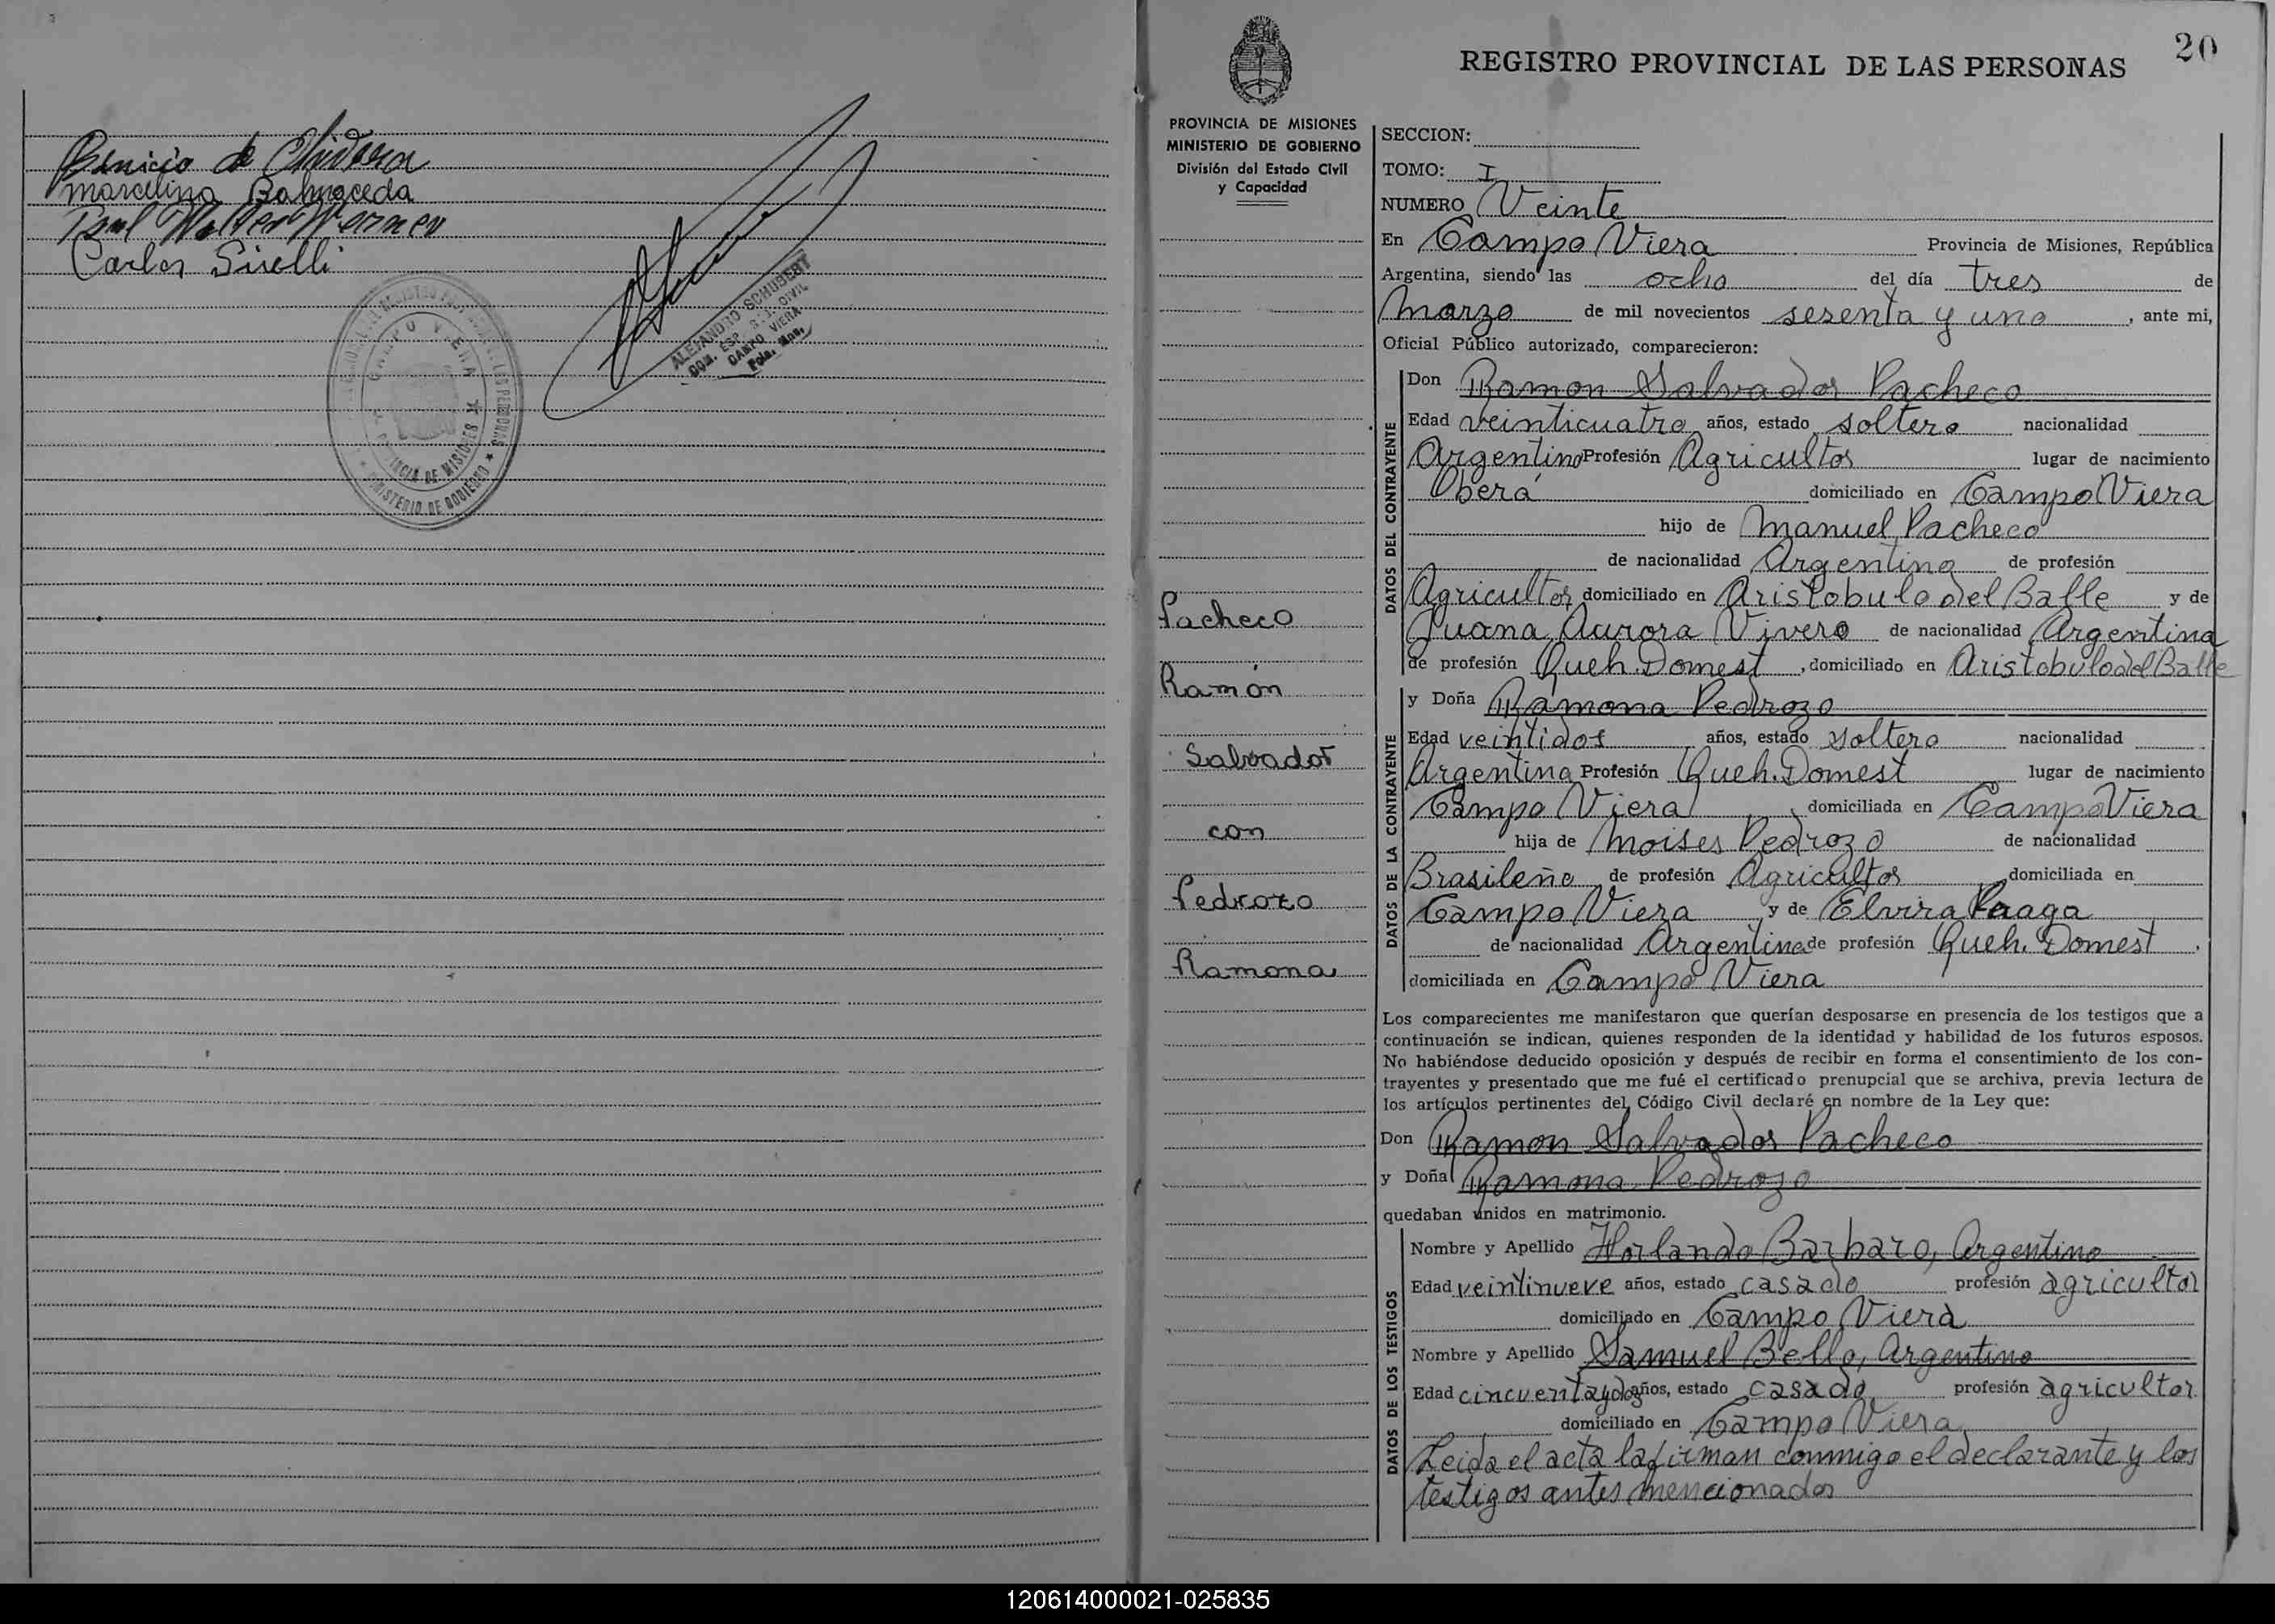 Benicio de Olivera
Marcelina Balmaceda
Paul Walter Werner
Carlos Sirelli
CAMPO VIERA
PROVINCIA DE MISIONES
MINISTERIO DE GOBIERNO
ALEJANDRO SCHUBERT
CAMPO VIERA
Pcia. Mnes.
20
REGISTRO PROVINCIAL DE LAS PERSONAS
PROVINCIA DE MISIONES
MINISTERIO DE GOBIERNO
División del Estado Civil
y Capacidad
Pacheco
Ramón
Salvador
con
Pedrozo
Ramona
SECCION:
TOMO: I
NUMERO Veinte
En Campo Viera Provincia de Misiones, República
Argentina, siendo las ocho del día tres de
Marzo de mil novecientos sesenta y uno, ante mi,
Oficial Público autorizado, comparecieron:
DATOS DEL CONTRAYENTE
Don Ramon Salvador Pacheco
Edad veinticuatro años, estado soltero nacionalidad
Argentino Profesión Agricultor lugar de nacimiento
Oberá domiciliado en Campo Viera
hijo de Manuel Pacheco
de nacionalidad Argentina de profesión
Agricultor domiciliado en Aristobulo del Balle y de
Juana Aurora Vivero de nacionalidad Argentina
de profesión Queh. Domest, domiciliado en Aristobulo del Balle
DATOS DE LA CONTRAYENTE
y Doña Ramona Pedrozo
Edad veintidos años, estado soltera nacionalidad
Argentina Profesión Queh. Domest lugar de nacimiento
Campo Viera domiciliada en Campo Viera
hija de Moises Pedrozo de nacionalidad
Brasileño de profesión Agricultor domiciliada en
Campo Viera y de Elvira Praga
de nacionalidad Argentina de profesión Queh. Domest.
domiciliada en Campo Viera
Los comparecientes me manifestaron que querían desposarse en presencia de los testigos que a
continuación se indican, quienes responden de la identidad y habilidad de los futuros esposos.
No habiéndose deducido oposición y después de recibir en forma el consentimiento de los con-
trayentes y presentado que me fué el certificado prenupcial que se archiva, previa lectura de
los artículos pertinentes del Código Civil declaré en nombre de la Ley que:
Don Ramon Salvador Pacheco
y Doña Ramona Pedrozo
quedaban unidos en matrimonio.
DATOS DE LOS TESTIGOS
Nombre y Apellido Horlando Barbaro, Argentino
Edad veintinueve años, estado casado profesión agricultor
domiciliado en Campo Viera
Nombre y Apellido Samuel Bello, Argentino
Edad cincuenta y dos años, estado casado profesión agricultor
domiciliado en Campo Viera
Leida el acta la firman conmigo el declarante y los
testigos antes mencionados
120614000021-025835